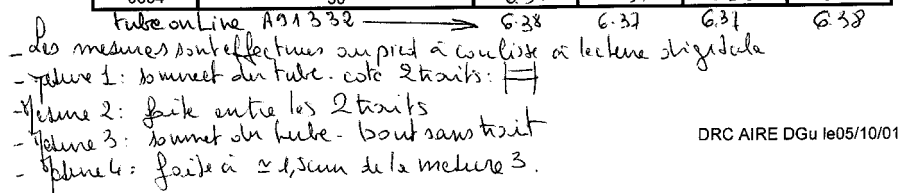 tube on Line A91332 → 6.38 6.37 6.37 6.38
- Les mesures sont effectues au pied à coulisse à lecture digitale
- Mesure 1: sommet du tube - coté 2 traits:
- Mesure 2: faite entre les 2 traits
- Mesure 3: sommet du tube - bout sans trait
DRC AIRE DGu le05/10/01
- Mesure 4: faite à ≃ 1,5cm de la mesure 3.